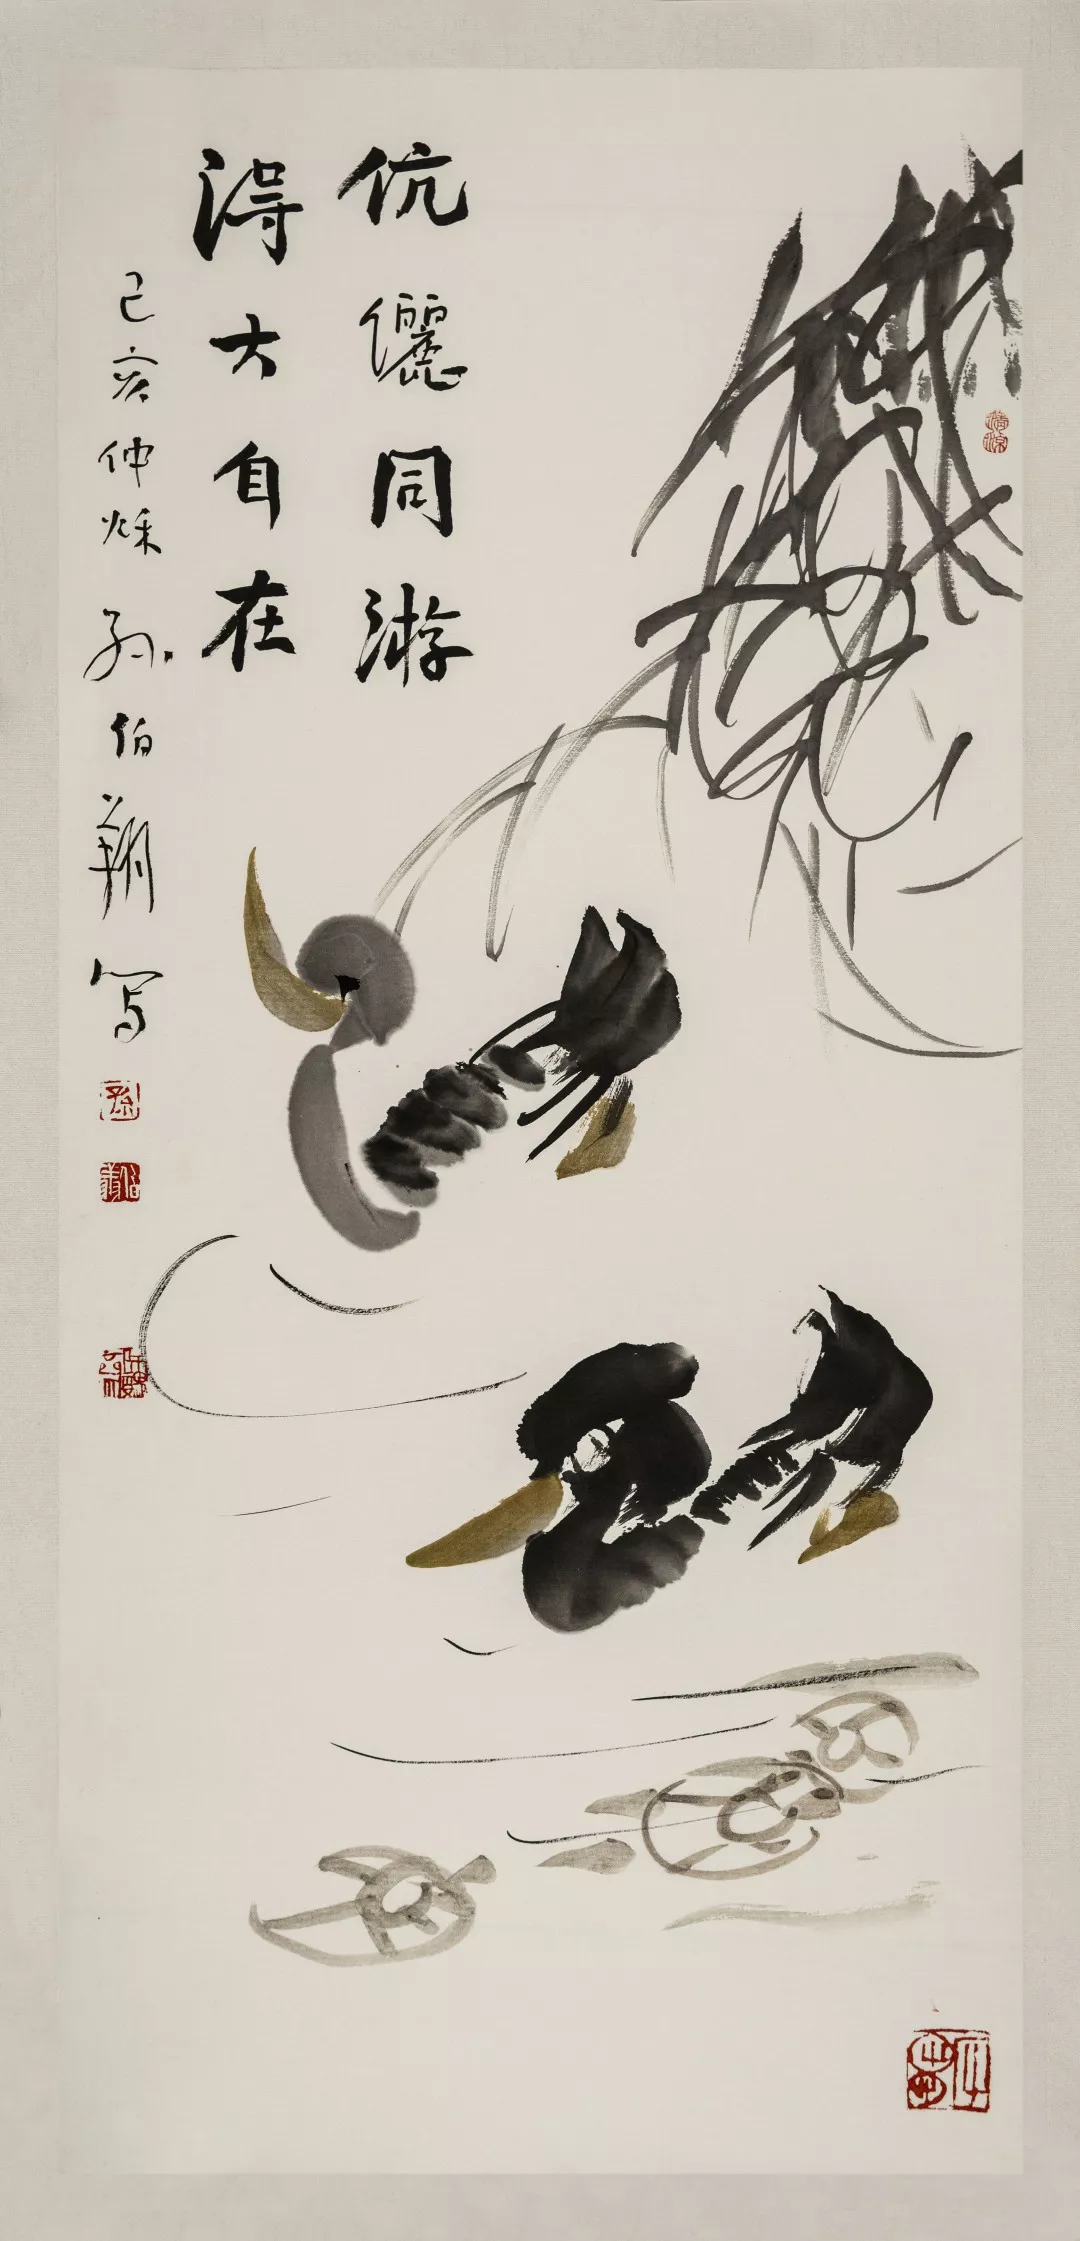 伉儷同游
淂大自在
己亥仲烁孙伯翔写